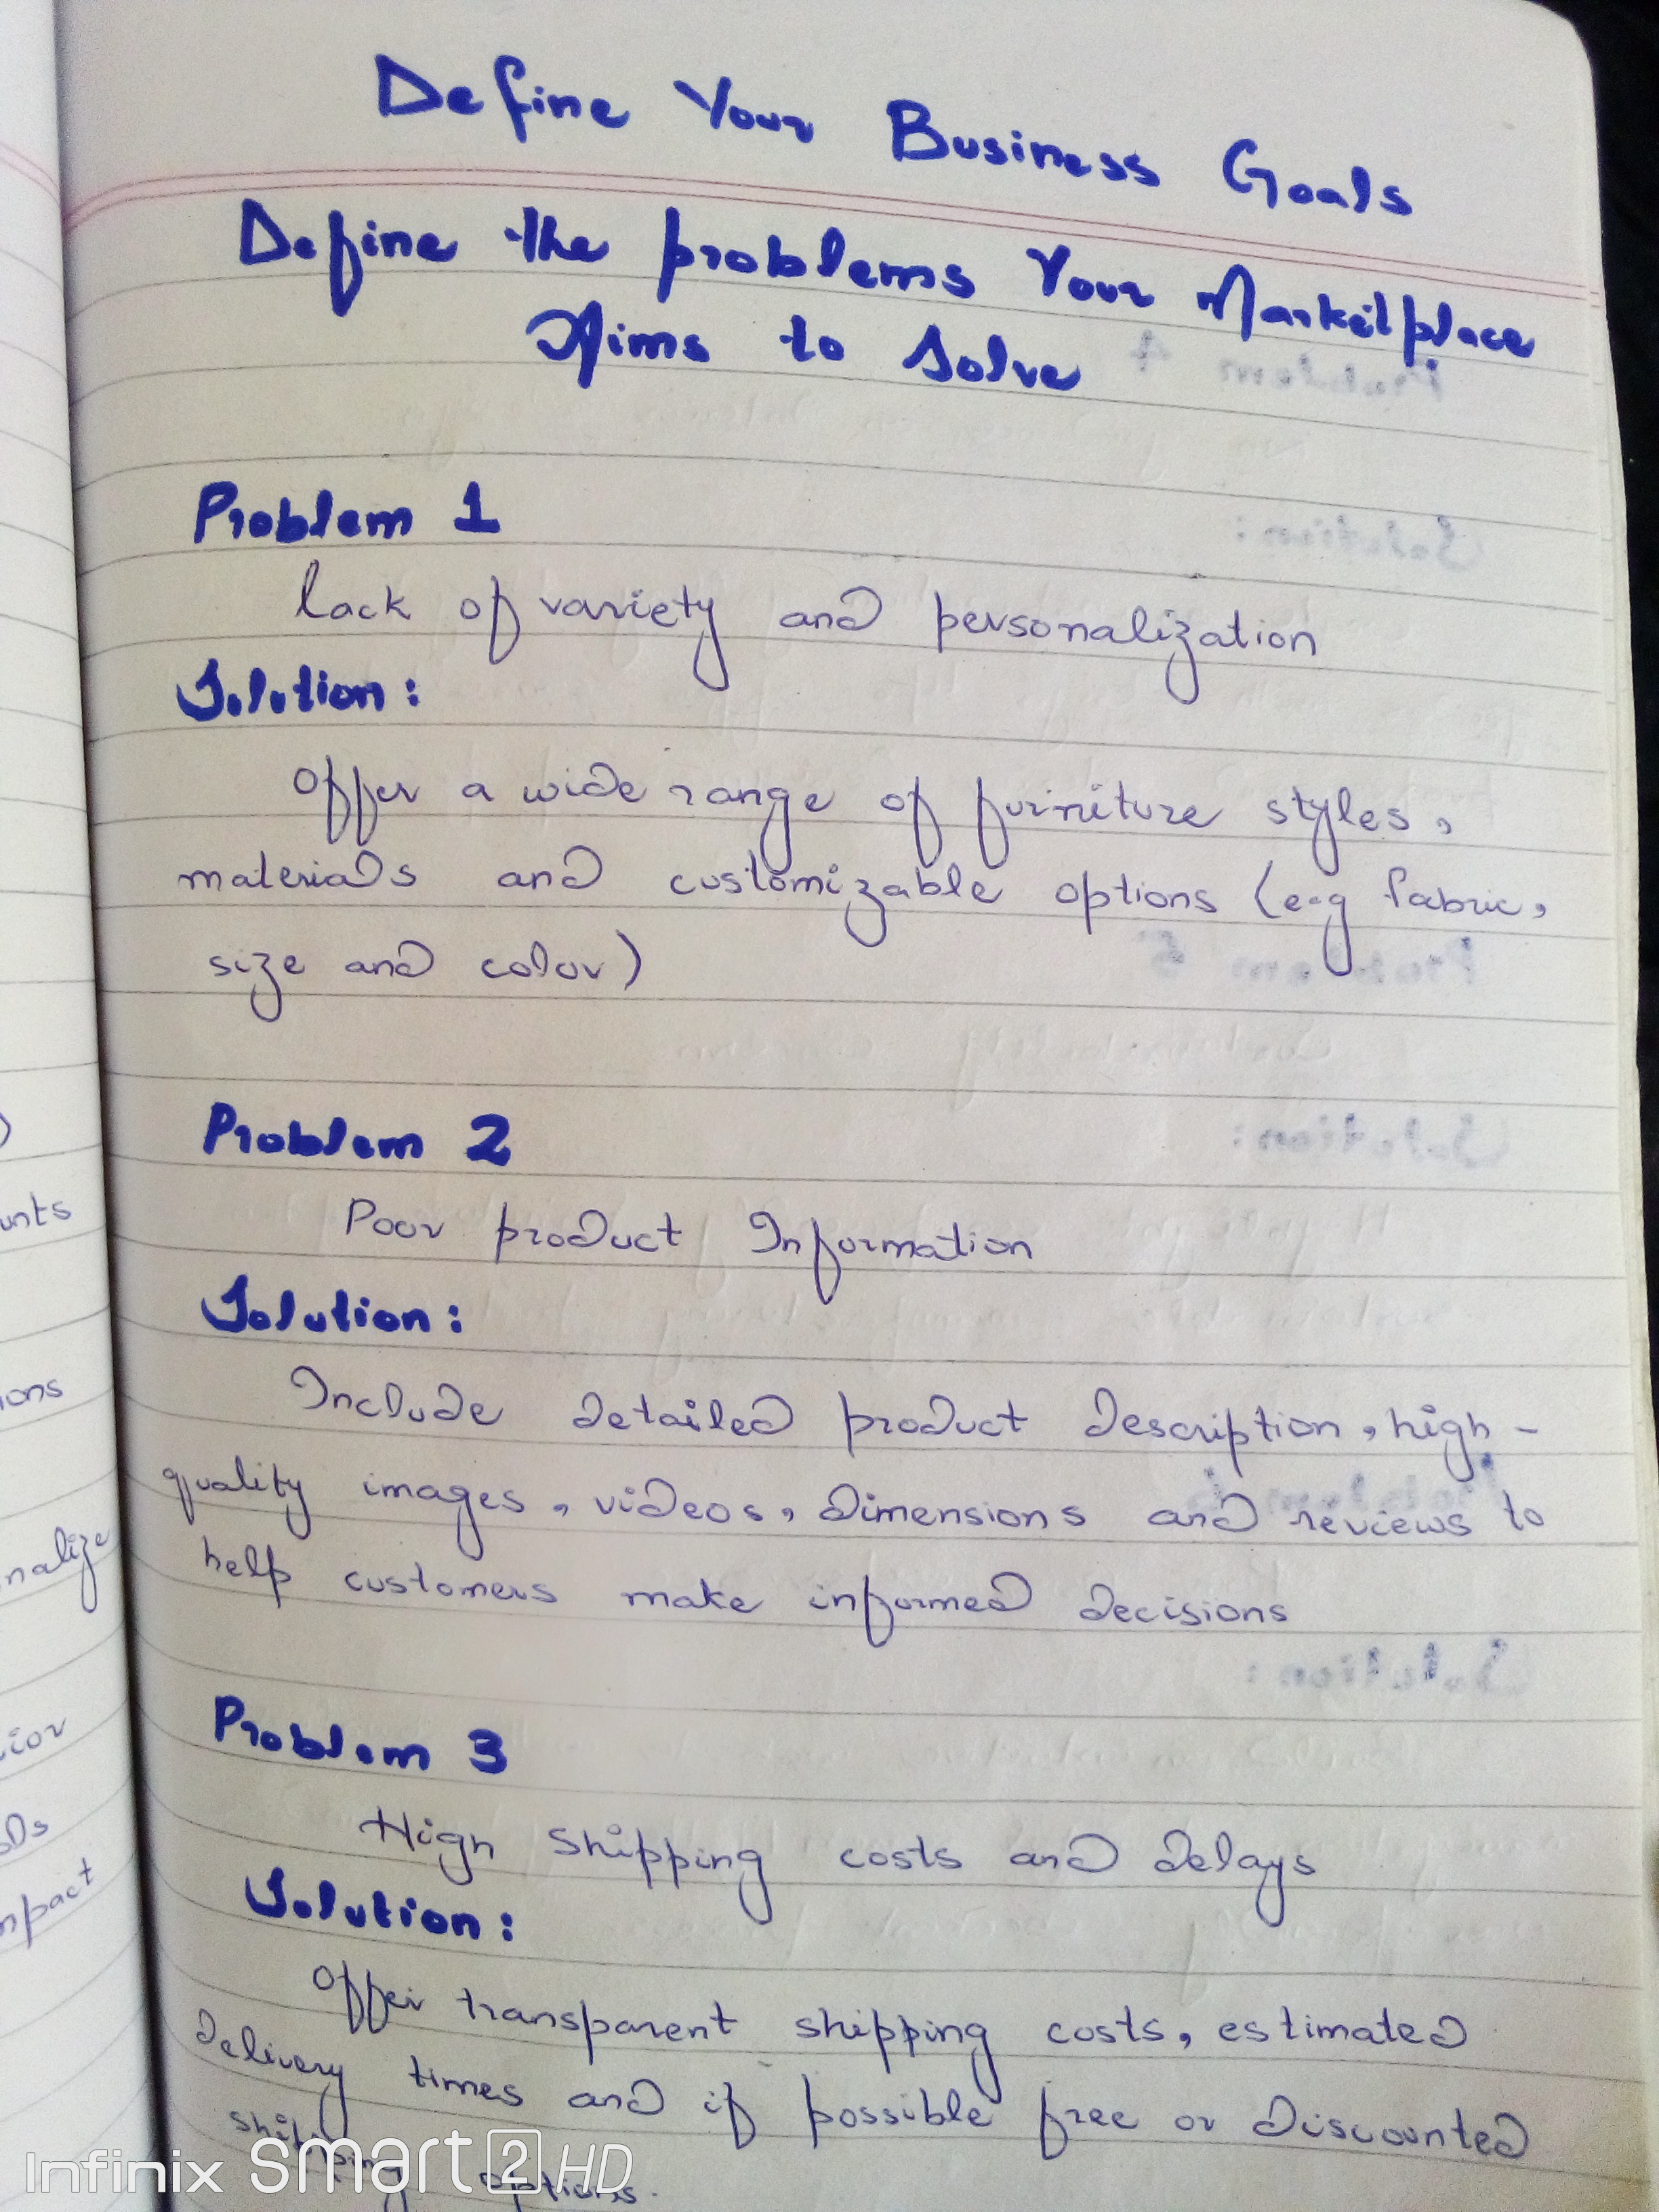 Define Your Business Goals
Define the problems Your Marketplace
Aims to Solve
Problem 1
lack of variety and personalization
Solution:
Offer a wide range of furniture styles,
materials and customizable options (e.g fabric,
size and color)
Problem 2
Poor product Information
Solution:
Include detailed product description, high-
quality images, videos, dimensions and reviews to
help customers make informed decisions
Problem 3
High shipping costs and delays
Solution:
Offer transparent shipping costs, estimated
delivery times and if possible free or discounted
shipping options.
unts
ions
nalize
ior
ods
mpact
Infinix Smart 2 HD